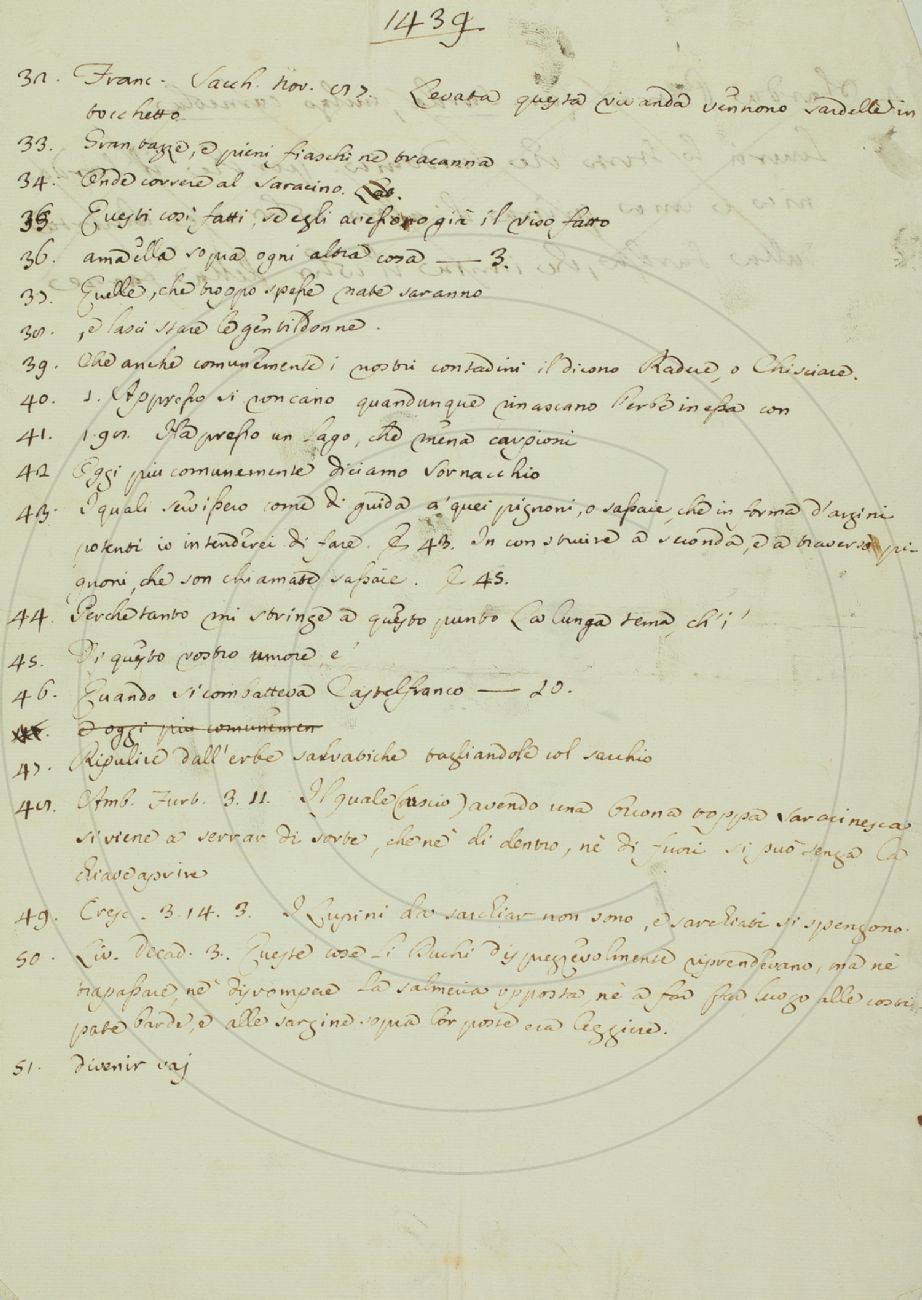 1439
32. Franc. Sacch. nov. 87. Levata questa vivanda vennono sardelle in
tocchetto
33. Gran tazze, e pieni fiaschi ne tracanna
34. Onde correre al saracino.
35. Questi così fatti, se egli avessono già il viso fatto
36. amaella sopra ogni altra cosa — 3.
37. Quelle, che troppo spesse nate saranno
38. , e lasci stare le gentildonne.
39. Che anche comunemente i nostri contadini il dicono Radere, o Chisciare.
40. 1. Appresso si roncano quandunque rinascano l'erbe in essa con
41. 1. 98. Ha presso un lago, che mena carpioni
42 Oggi più comunemente diciamo Sornacchio
43. I quali servissero come di guida a' quei pignoni, o sassaie, che in forma d'argini
potenti io intenderei di fare. E 43. In construire a seconda, e a traverso pi-
gnoni, che son chiamate sassaie. E 45.
44. Perche tanto mi stringe a questo punto La lunga tema, ch' i'
45. Di questo vostro umore, e'
46. Quando si combatteva Castelfranco — 20.
e oggi più comunemen
47. Ripulire dall'erbe salvatiche tagliandole col sacchio
48. Amb. Furb. 3. 11. Il quale (uscio) avendo una buona toppa saracinesca
si viene a serrar di sorte, che nè di dentro, nè di fuori si può senza la
chiave aprire
49. Cresc. 3. 14. 3. I Lupini da sarchiar non sono, e sarchiati si spengono.
50. Liv. Decad. 3. Queste cose li Bachi dispregevolmente riprendevano, ma nè
trapassare, nè dirompere la salmeria opposta, nè a far fra luogo alle costi
pate barde, e alle sargine sopra lor poste era leggiere.
51. divenir vaj